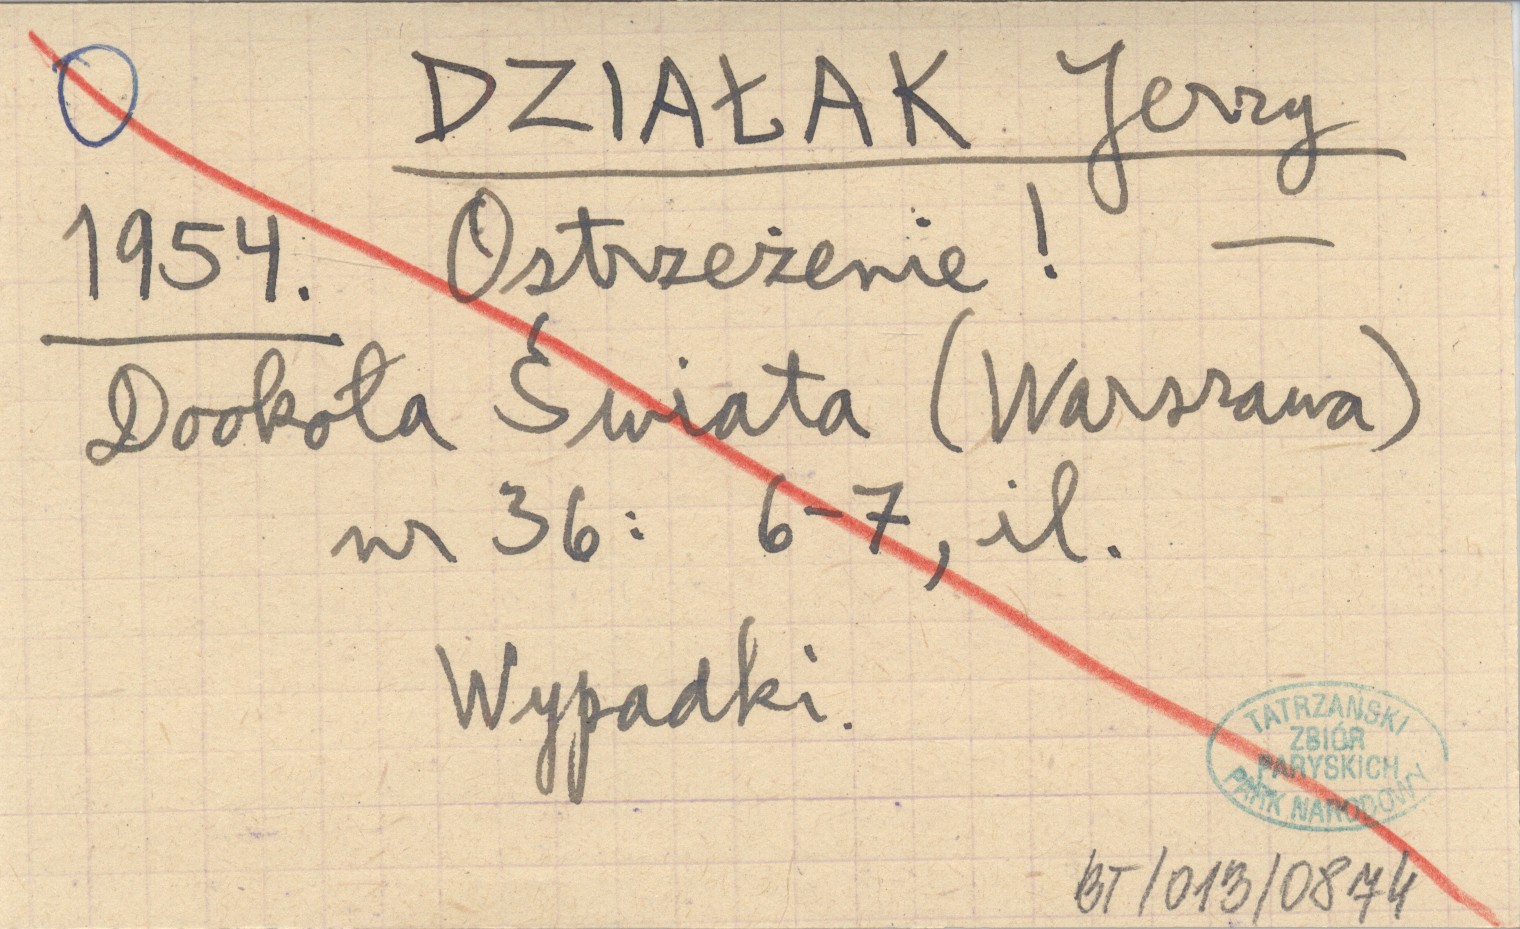 DZIAŁAK Jerzy
1954. Ostrzeżenie! —
Dookoła Świata (Warszawa)
nr 36: 6-7, il.
Wypadki.
TATRZAŃSKI
ZBIÓR
PARYSKICH
PARK NARODOWY
BT/013/0874